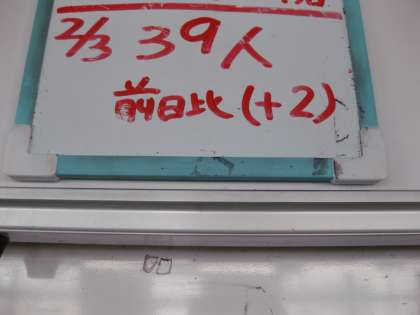 2/3 39人
前日比(+2)